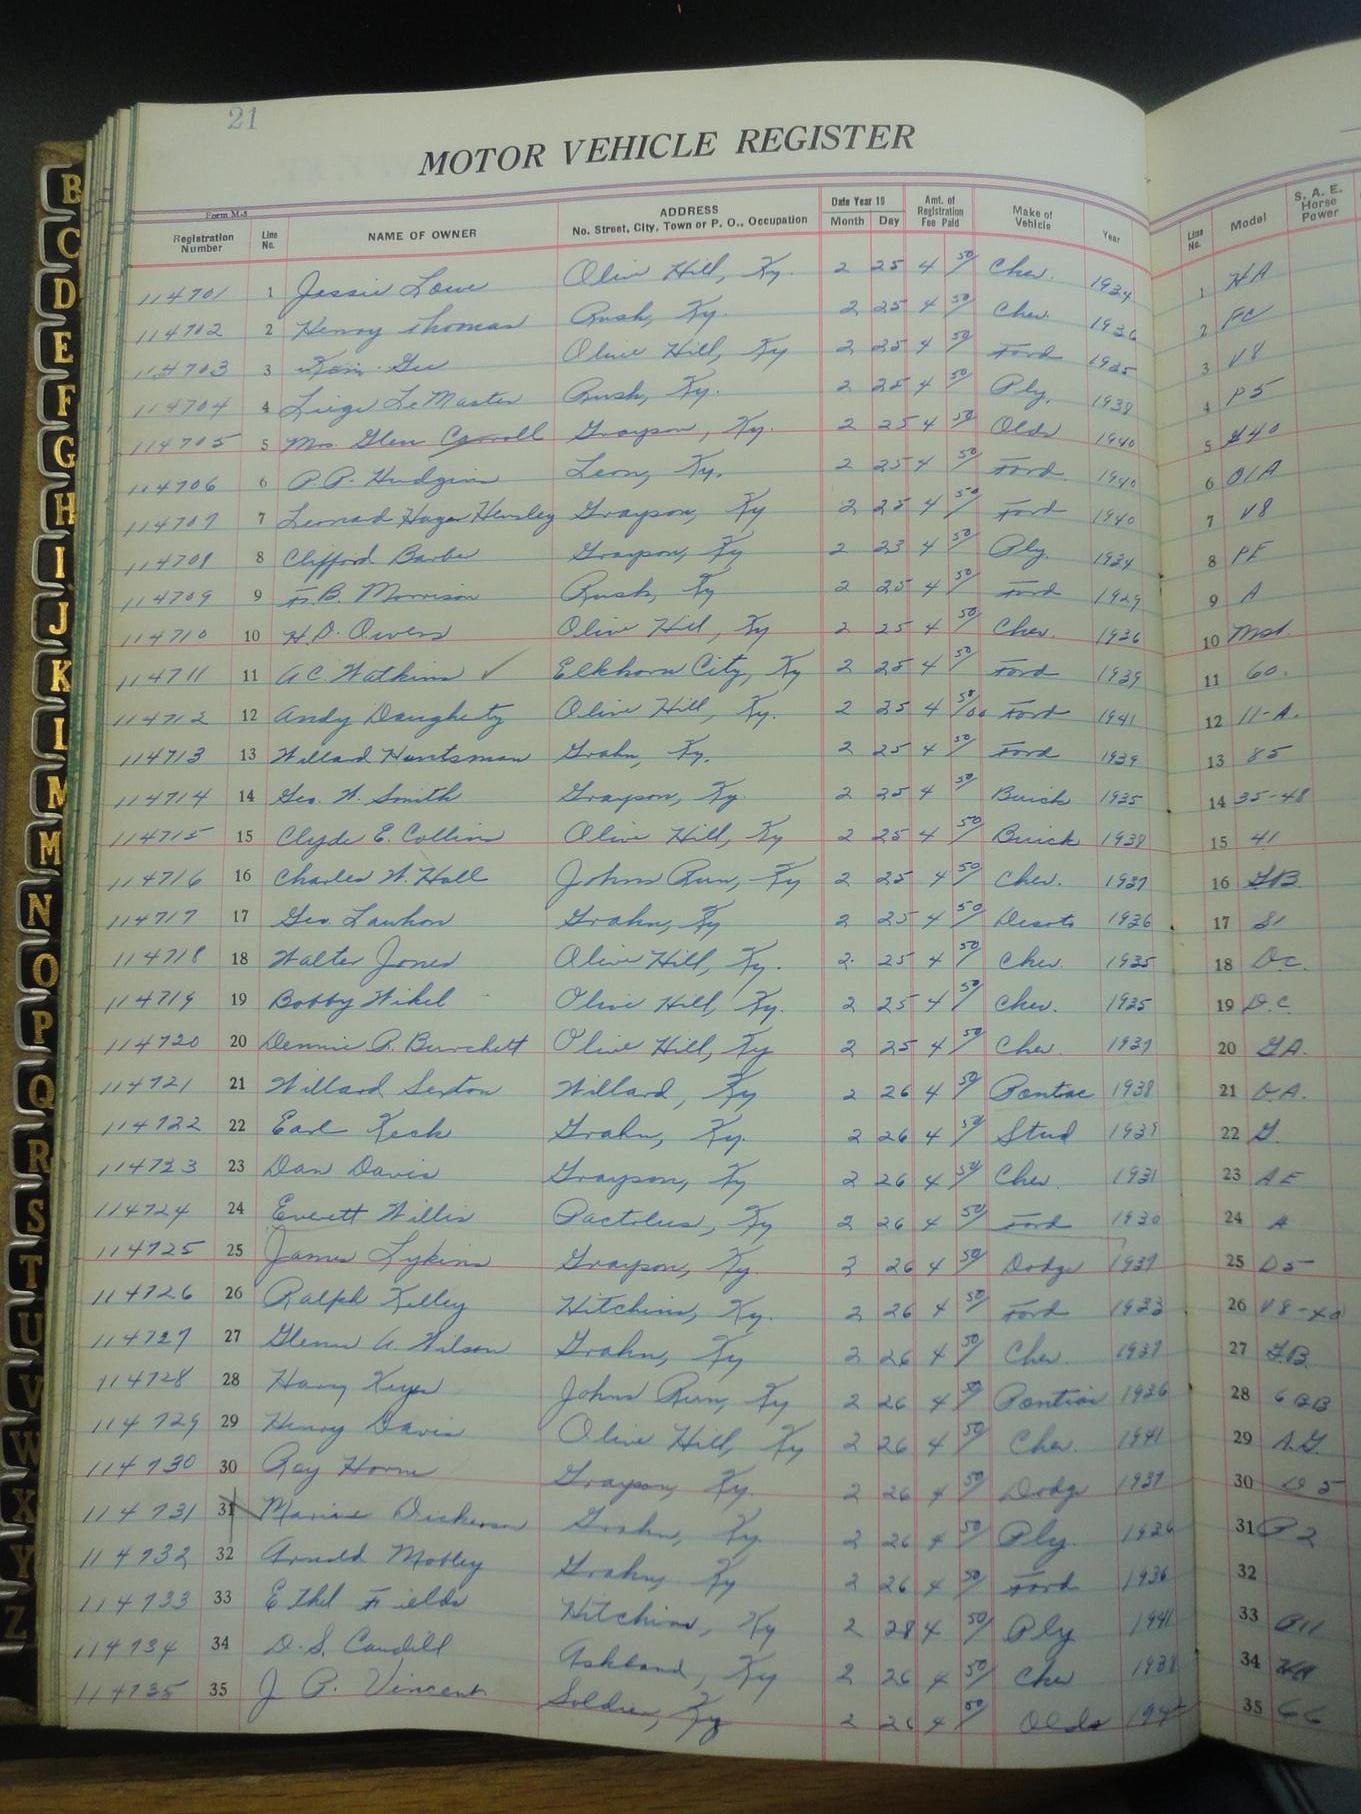 21
MOTOR VEHICLE REGISTER
Form M-5
Registration Number Line No. NAME OF OWNER ADDRESS No. Street, City, Town or P. O., Occupation Date Year 19 Month Day Amt. of Registration Fee Paid Make of Vehicle Year Line No. Model S. A. E. Horse Power
114701 1 Jessie Lowe Olive Hill, Ky. 2 25 4 50/ Chev. 1934 1 HA
114702 2 Henry Thomas Rush, Ky. 2 25 4 50/ Chev. 1936 2 FC
114703 3 Olive Hill, Ky 2 25 4 50/ Ford 1935 3 V8
114704 4 Liege LeMaster Rush, Ky. 2 25 4 50/ Ply. 1938 4 P5
114705 5 Mrs. Glen Carroll Grayson, Ky. 2 25 4 50/ Olds 1940 5 40
114706 6 P.P. Hudgins Leon, Ky. 2 25 4 50/ Ford 1940 6 01A
114707 7 Leonad Hager Hensley Grayson, Ky 2 25 4 50/ Ford 1940 7 V8
114708 8 Clifford Barber Grayson, Ky 2 23 4 50/ Ply. 1934 8 PE
114709 9 B. Morrison Rush, Ky 2 25 4 50/ Ford 1929 9 A
114710 10 H.D. Owens Olive Hill, Ky 2 25 4 50/ Chev. 1936 10 Mst.
114711 11 A.C. Watkins ✓ Elkhorn City, Ky 2 25 4 50/ Ford 1939 11 60.
114712 12 Andy Daugherty Olive Hill, Ky. 2 25 4 50/00 Ford 1941 12 11-A.
114713 13 Willard Huntsman Grahn, Ky. 2 25 4 50/ Ford 1939 13 85
114714 14 Geo. W. Smith Grayson, Ky. 2 25 4 50/ Buick 1935 14 35-48
114715 15 Clyde E. Collins Olive Hill, Ky 2 25 4 50/ Buick 1938 15 41
114716 16 Charles W. Hall Johns Run, Ky 2 25 4 50/ Chev. 1937 16 GB
114717 17 Geo. Lawhon Grahn, Ky 2 25 4 50/ Desoto 1936 17 S1
114718 18 Walter Jones Olive Hill, Ky. 2 25 4 50/ Chev. 1935 18 D.C.
114719 19 Bobby Wikel Olive Hill, Ky. 2 25 4 50/ Chev. 1935 19 D.C.
114720 20 Dennie R. Burchett Olive Hill, Ky 2 25 4 50/ Chev. 1937 20 GA.
114721 21 Willard Sexton Willard, Ky 2 26 4 50/ Pontiac 1938 21 D.A.
114722 22 Earl Keck Grahn, Ky. 2 26 4 50/ Stud 1939 22 G.
114723 23 Dan Davis Grayson, Ky 2 26 4 50/ Chev. 1931 23 AE
114724 24 Everett Willis Pactolus, Ky 2 26 4 50/ Ford 1930 24 A
114725 25 James Lykins Grayson, Ky. 2 26 4 50/ Dodge 1937 25 D5
114726 26 Ralph Kelley Hitchins, Ky. 2 26 4 50/ Ford 1933 26 V8-40
114727 27 Glenn A. Wilson Grahn, Ky 2 26 4 50/ Chev. 1937 27 GB
114728 28 Harry Keyes Johns Run, Ky 2 26 4 50/ Pontiac 1936 28 6 BB
114729 29 Henry Davis Olive Hill, Ky 2 26 4 50/ Chev. 1941 29 A.G.
114730 30 Roy Horne Grayson, Ky. 2 26 4 50/ Dodge 1937 30 D5
114731 31 Marine Dickerson Grahn, Ky. 2 26 4 50/ Ply. 1936 31 P2
114732 32 Arnold Mobley Grahn, Ky 2 26 4 50/ Ford 1936 32
114733 33 Ethel Fields Hitchins, Ky 2 28 4 50/ Ply 1941 33 P11
114734 34 D.S. Caudill Ashland, Ky 2 26 4 50/ Chev 1938 34
114735 35 J. P. Vincent Soldier, Ky 2 26 4 50/ Olds 35
B
C
D
E
F
G
H
I
J
K
L
M
M
N
O
P
Q
R
S
T
U
V
W
X
Y
Z